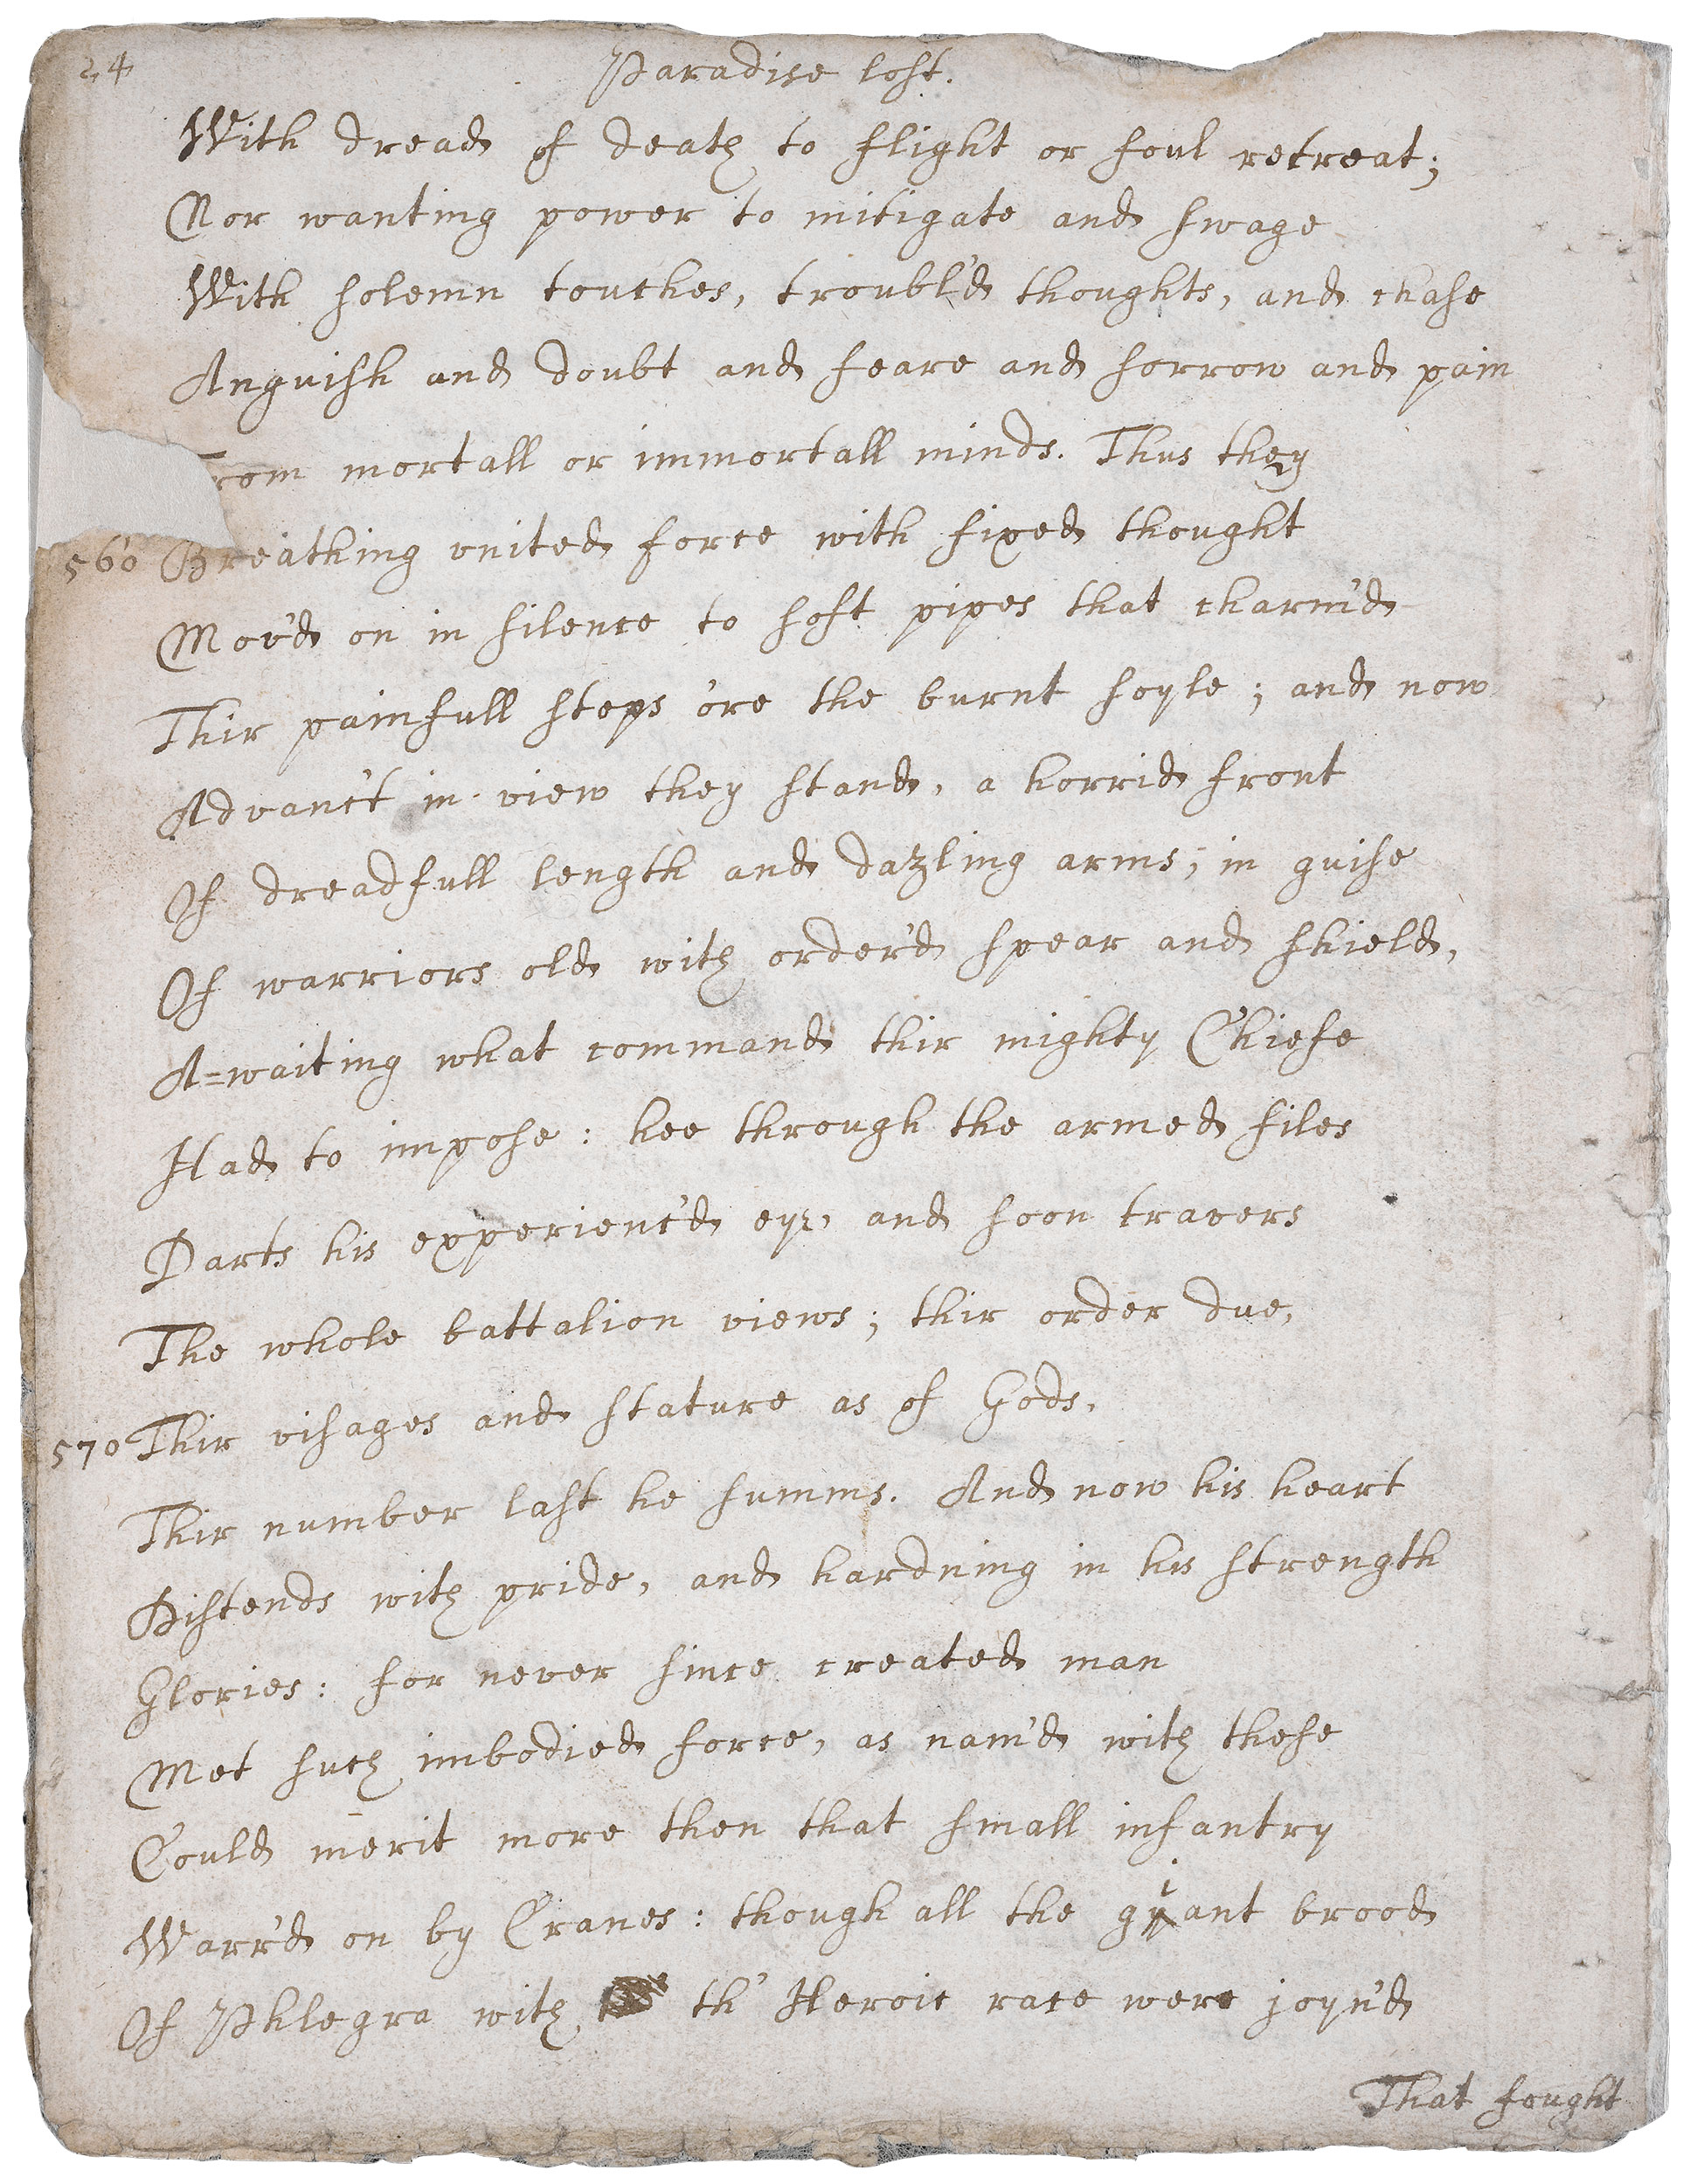 24
Paradise lost.
With dread of death to flight or foul retreat;
Nor wanting power to mitigate and swage
With solemn touches, troubl'd thoughts, and chase
Anguish and doubt and feare and sorrow and pain
rom mortall or immortall minds. Thus they
560 Breathing united force with fixed thought
Mov'd on in silence to soft pipes that charm'd
Thir painfull steps o're the burnt soyle; and now
Advanc't in view they stand, a horrid front
Of dreadfull length and dazling arms; in guise
Of warriors old with order'd spear and shield,
A=waiting what command thir mighty Chiefe
Had to impose: hee through the armed files
Darts his experienc't eye, and soon travers
The whole battalion views; thir order due,
570 Thir visages and stature as of Gods,
Thir number last he summs. And now his heart
Distends with pride, and hardning in his strength
Glories: for never since created man
Met such imbodied force, as nam'd with these
Could merit more then that small infantry
Warr'd on by Cranes: though all the giant brood
Of Phlegra with th' Heroic race were joyn'd
That fought